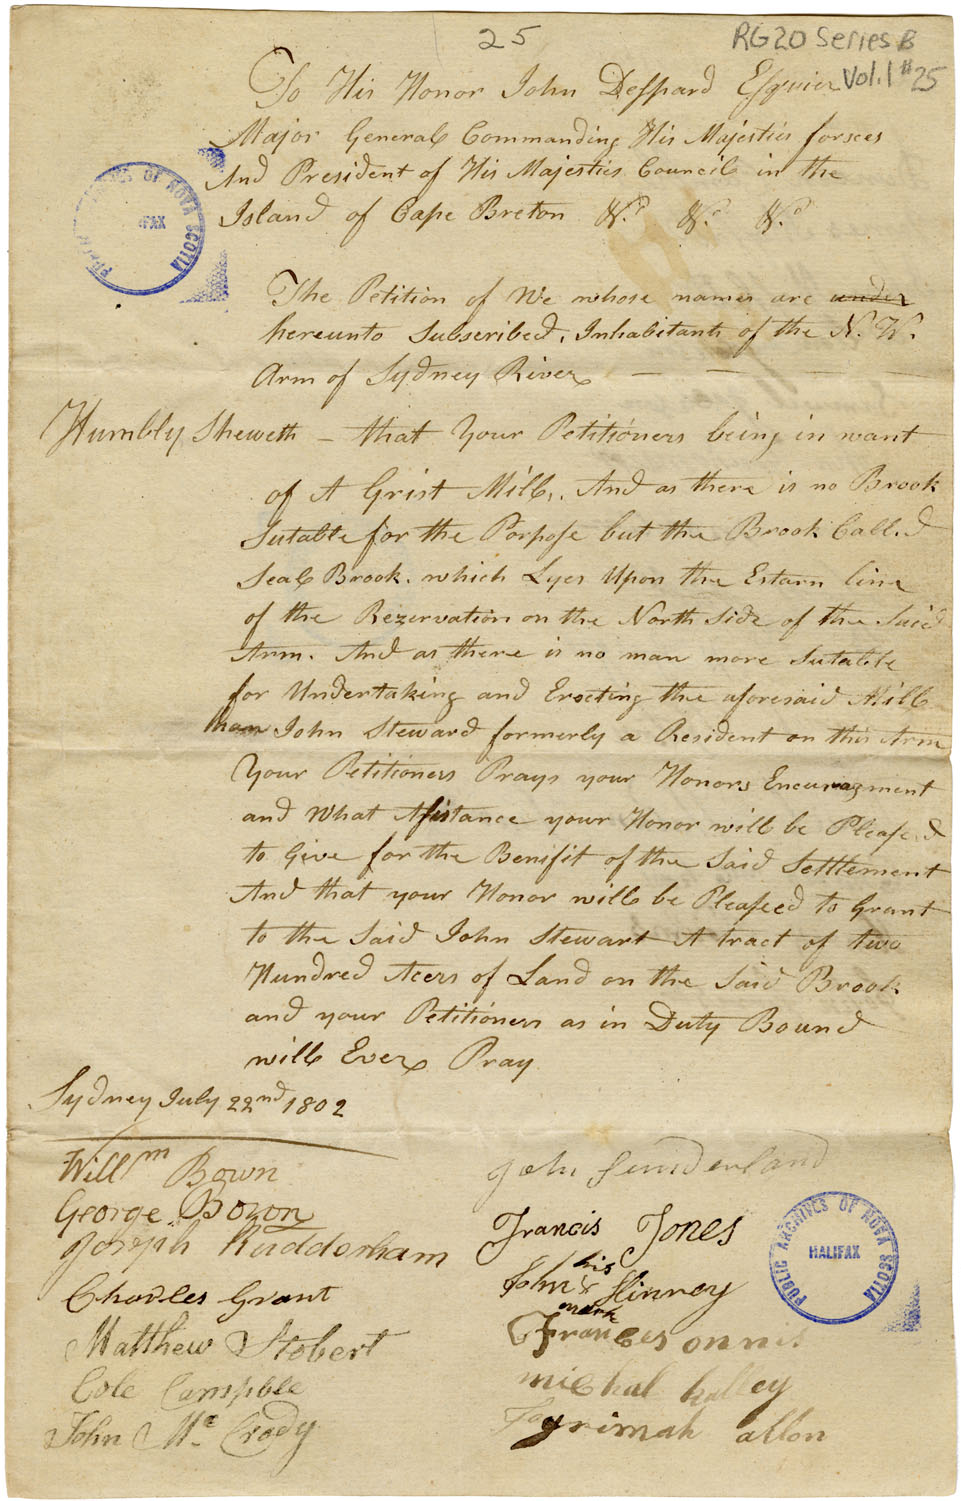 25
RG20 Series B
Vol. 1 #25
To His Honor John Despard Esquier
Major General Commanding His Majesties forses
And President of His Majesties Council in the
Island of Cape Breton &c. &c. &c.
PUBLIC ARCHIVES OF NOVA SCOTIA
HALIFAX
The Petition of We whose names are under
hereunto Subscribed, Inhabitants of the N. W.
Arm of Sydney River
Humbly Sheweth – that Your Petitioners being in want
of A Grist Mill, And as there is no Brook
Sutable for the Porpose but the Brook Called
Seal Brook. which Lyes Upon the Estarn line
of the Rezervation on the North Side of the Said
Arm. And as there is no man more Sutable
for Undertaking and Erecting the aforesaid Mill
than John Steward formerly a Resident on this Arm
Your Petitioners Prays your Honors Encuragment
and What Assistance your Honor will be Pleased
to Give for the Benifit of the Said Settlement
And that your Honor will be Pleaseed to Grant
to the Said John Stewart A tract of two
Hundred Acers of Land on the Said Brook
and your Petitioners as in Duty Bound
will Ever Pray
Sydney July 22nd 1802
Willm Bown
George Bown
Joseph Rudderham
Charles Grant
Matthew Stobert
Cole Campble
John Mc Crody
John Sunderland
Francis Jones
his
John Hinney
mark
Frances onnis
michal kalley
allon
PUBLIC ARCHIVES OF NOVA SCOTIA
HALIFAX